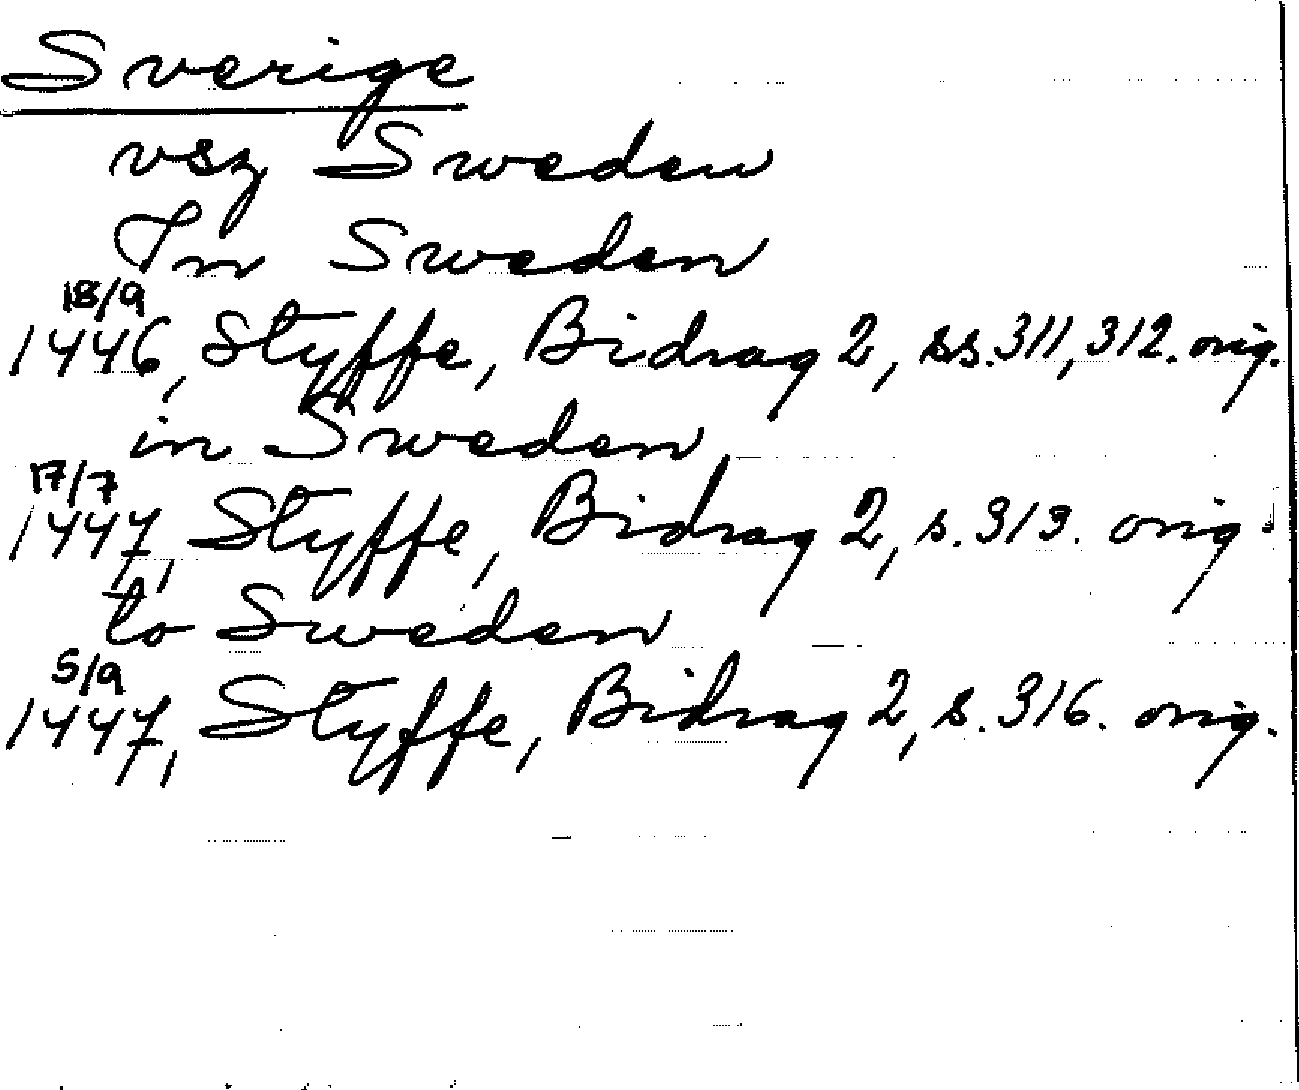 Sverige
vsz Sweden
In Sweden
18/9
1446, Styffe, Bidrag 2, ss. 311, 312. orig.
in Sweden
17/7
1447, Styffe, Bidrag 2, s. 313. orig.
to Sweden
5/9
1447, Styffe, Bidrag 2, s. 316. orig.